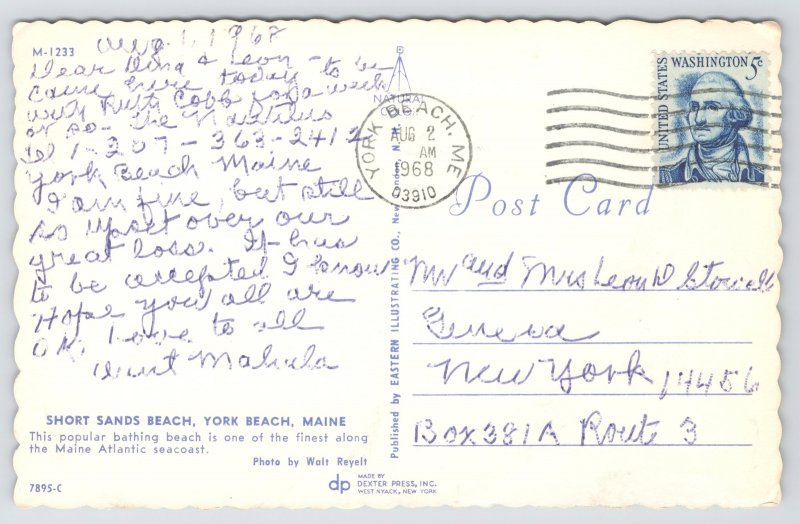 M-1233
Aug. 1, 1968
Dear & Leon - to be
came here today
with Ruth Cobb for a week
or so - the Nautilus
tel 1-207-363-2412
York Beach Maine
I am fine, but still
so upset over our
great loss. It has
to be accepted I know
Hope you all are
OK, Love to all
Aunt Mahala
SHORT SANDS BEACH, YORK BEACH, MAINE
This popular bathing beach is one of the finest along
the Maine Atlantic seacoast.
Photo by Walt Reyelt
7895-C
NATURAL
Published by EASTERN ILLUSTRATING CO., New London, N.H.
dp
MADE BY
DEXTER PRESS, INC.
WEST NYACK, NEW YORK
YORK BEACH, ME
AUG 2
AM
1968
03910
UNITED STATES
WASHINGTON 5c
Post Card
Mr and Mrs Leon D
Geneva
New York 14456
Box 381A Rout 3